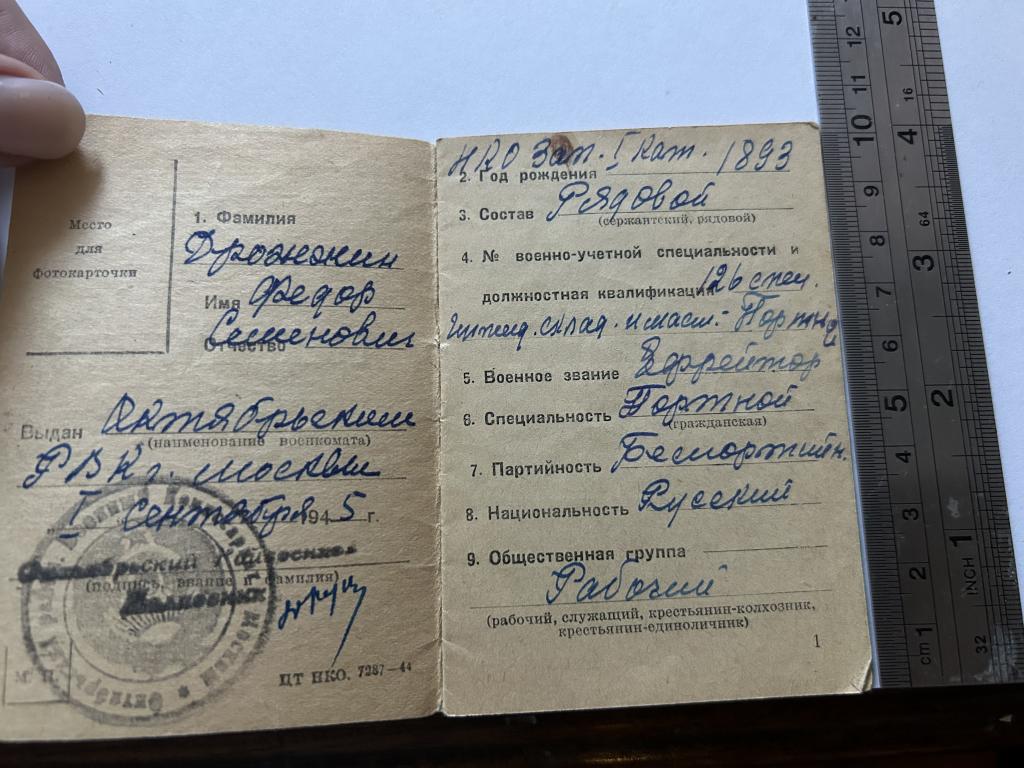 Место
для
фотокарточки
1. Фамилия
Дрожжин
Имя Федор
Семенович
Отчество
Выдан Октябрьским
(наименование военкомата)
РВК г. Москвы
"1" сентября 1945 г.
Октябрьский Райвоенком
(подпись, звание и фамилия)
Полковник
М. П.
ЦТ НКО. 7287-44
НКО Зап. I Кат. 1893
2. Год рождения
3. Состав Рядовой
(сержантский, рядовой)
4. № военно-учетной специальности и
должностная квалификация 126 спец.
склад. Портной
5. Военное звание Ефрейтор
6. Специальность Портной
(гражданская)
7. Партийность Беспартийн.
8. Национальность Русский
9. Общественная группа
Рабочий
(рабочий, служащий, крестьянин-колхозник,
крестьянин-единоличник)
1
12
11
10
9
8
7
6
5
4
3
2
cm 1
5
4
16
64
3
2
1
INCH
32